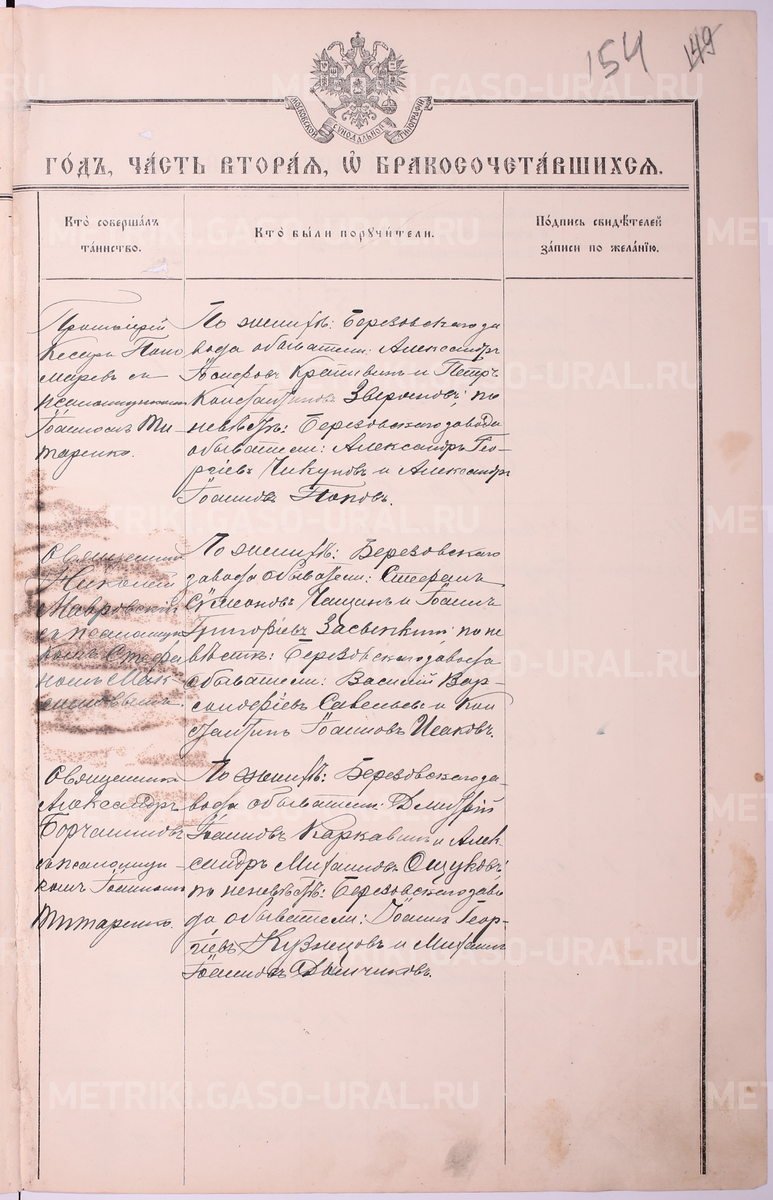 154
149
МОСКОВСКОЙ СѴНОДАЛЬНОЙ ТИПОГРАФІИ
ГОДЪ, ЧАСТЬ ВТОРАЯ, Ѡ БРАКОСОЧЕТАВШИХСЯ.
Кто совершалъ
таинство.
Кто были поручители.
Подпись свидѣтелей
записи по желанію.
Протоіерей
Кесарь Поно
маревъ съ
псаломщикомъ
Іоанномъ Ти-
таренко.
По женихѣ: Березовскаго за
вода обыватели: Александръ
Іосифовъ и Петръ
Константиновъ по
невѣстѣ: Березовскаго завода
обыватели: Александръ Геор-
гіевъ Чикуновъ и Александръ
Іоанновъ Поповъ.
Священникъ
Николай
Мавровскій
съ псаломщи
комъ Стефа
номъ Мак-
симовымъ.
По женихѣ: Березовскаго
завода обыватели: Стефанъ
Сѵмеоновъ и Іоаннъ
Григоріевъ Засыпкинъ; по не
вѣстѣ: Березовскаго завода
обыватели: Василій Вар-
сонофіевъ Савельевъ и Кон
стантинъ Іоанновъ Исаковъ.
Священникъ
Александръ
съ псаломщи-
комъ Іоанномъ
Титаренко.
По женихѣ: Березовскаго за-
вода обыватели: Димитрій
Іоанновъ и Алек-
сандръ Михаиловъ
по невѣстѣ: Березовскаго заво
да обыватели: Іоаннъ Геор-
гіевъ Кузнецовъ и Михаилъ
Іоанновъ
METRIKI.GASO-URAL.RU